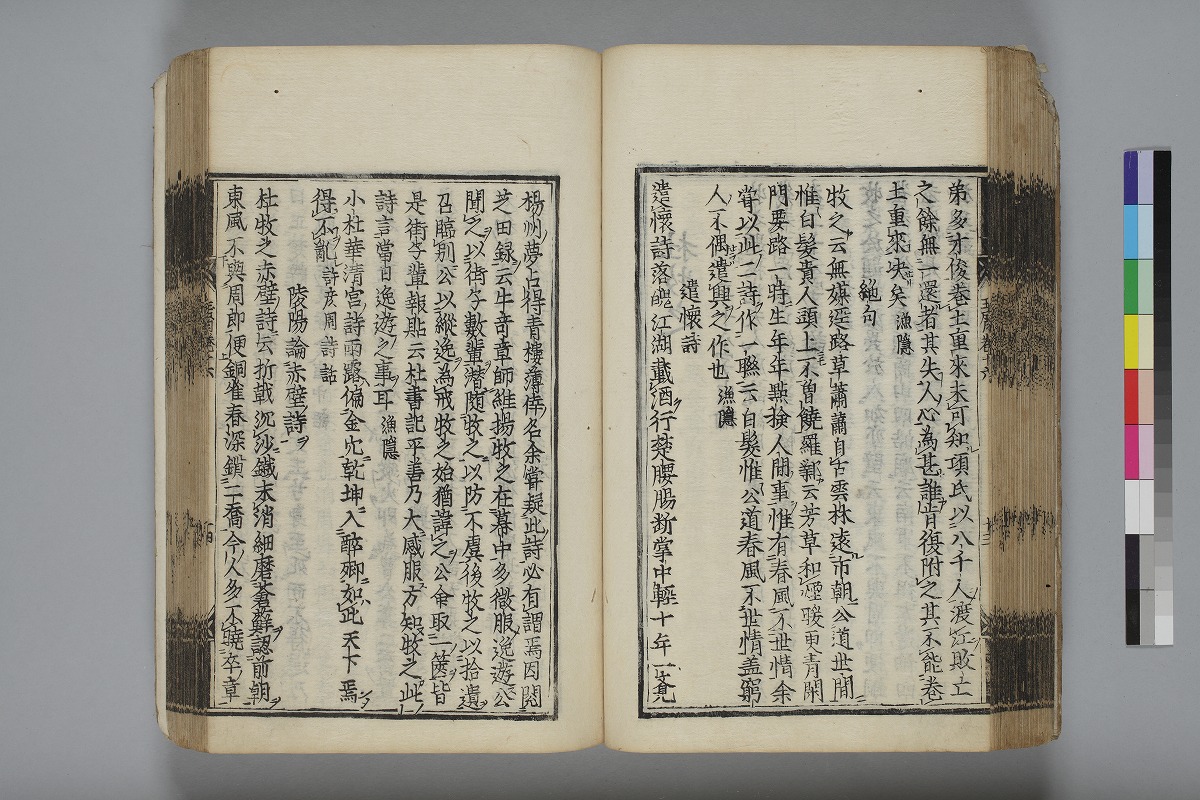 弟多才俊卷土重來未可知項氏以八千人渡江敗亡
之餘無一還者其失人心為甚誰肯復附之其不能卷
土重來決矣 漁隱
絕句
牧之云無媒逕路草蕭蕭自古雲林遠市朝公道世間
惟白髮貴人頭上不曽饒羅鄴云芳草和煙暖更青閑
門要路一時生年年點撿人間事惟有春風不世情余
甞以此二詩作一聯云白髮惟公道春風不世情盖窮
人不偶遣興之作也 漁隱
遣懷詩
遣懷詩落魄江湖載酒行楚腰腸断掌中輕十年一覺
楊州夢占得青樓薄倖名余甞疑此詩必有謂焉因閱
芝田録云牛奇章師維揚牧之在幕中多微服逸遊公
聞之以街子數輩潜随牧之以防不虞後牧之以拾遺
召臨别公以縱逸為戒牧之始猶諱之公命取一篋皆
是街子輩報貼云杜書記平善乃大感服方知牧之此
詩言當日逸遊之事耳 漁隱
小杜華清宮詩雨露偏金穴乾坤入醉鄉如此天下焉
得不亂 許彦周詩話
陵陽論赤壁詩
杜牧之赤壁詩云折戟沉沙鐡未消細磨蒼蘚認前朝
東風不與周郎便銅雀春深鎖二喬今人多不曉卒章